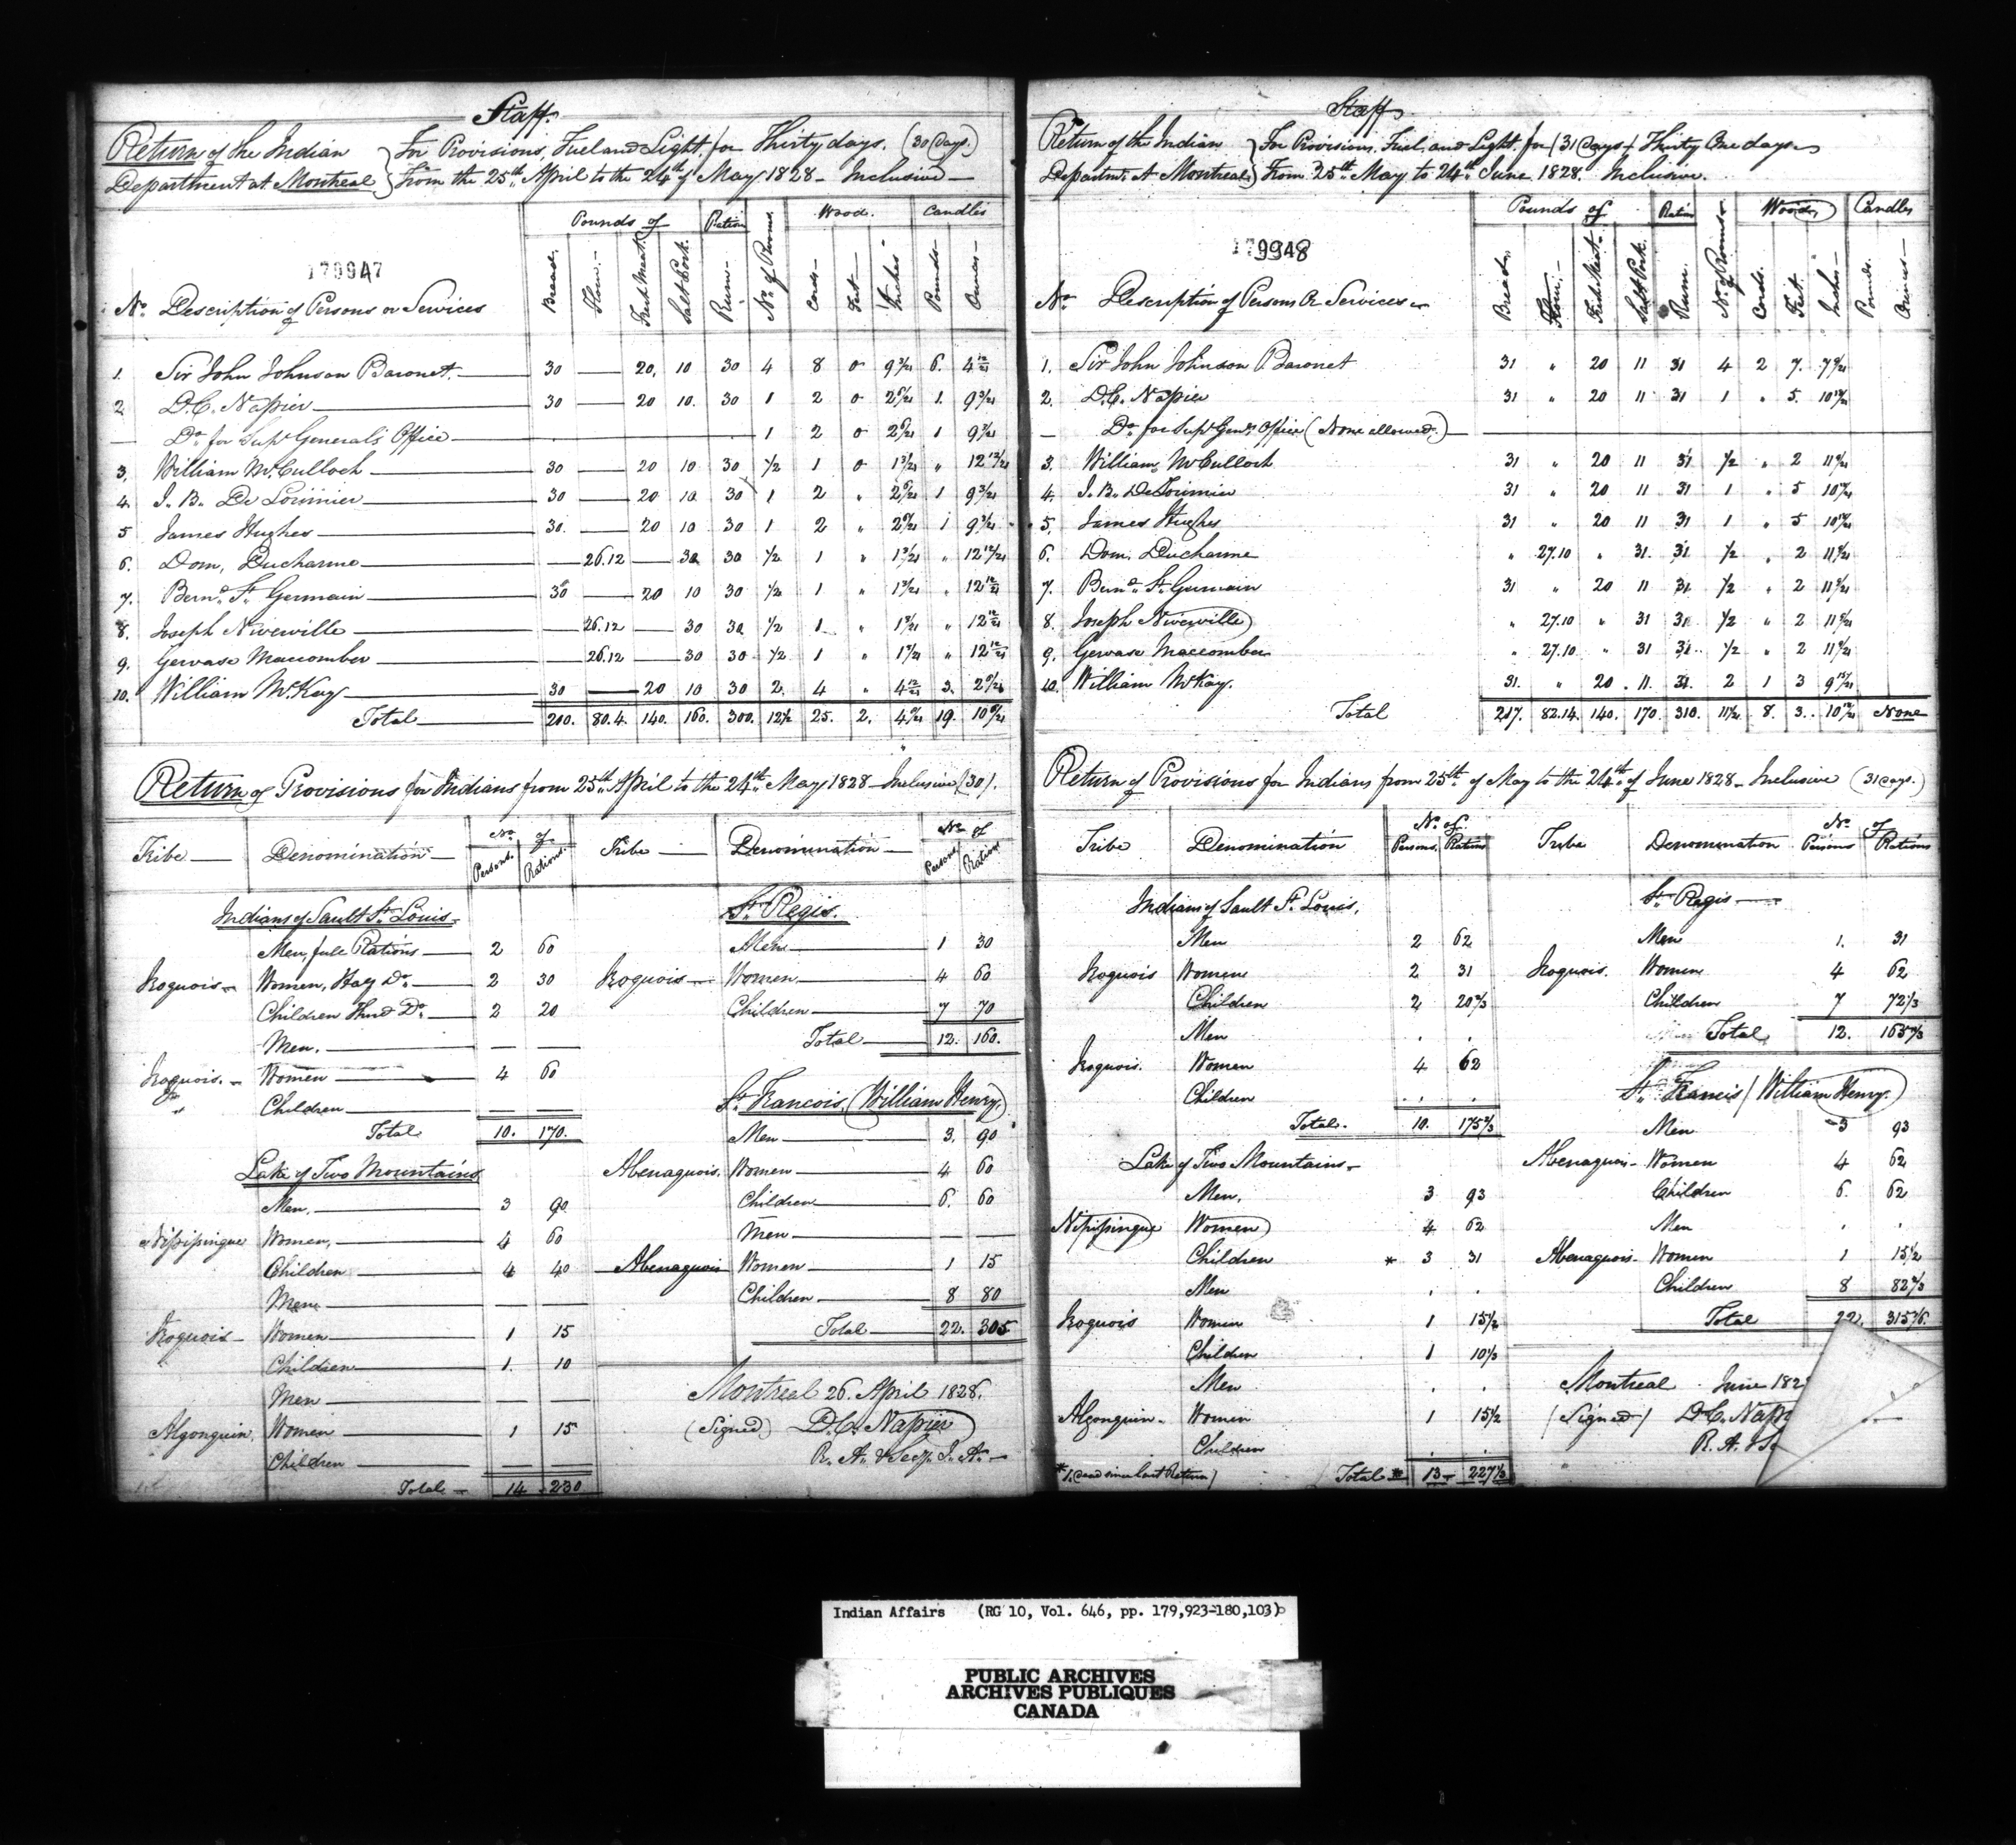 Staff.
Return of the Indian } For Provisions, Fuel and Light, for Thirty days. (30 Days.)
Department at Montreal } From the 25th April to the 24th of May 1828 - Inclusive -
Pounds of Ration No. of Rooms Wood. Candles
179947
No. Description of Persons or Services Bread. Flour. Fresh Meat. Salt Pork. Rum. Cords Feet Inches Pounds Ounces
1. Sir John Johnson Baronet. 30 20. 10 30 4 8 0 9 3/21 6. 4 12/21
2 D.C. Napier 30 20 10. 30 1 2 0 2 6/21 1. 9 3/21
Do. for Supt. General's Office 1 2 0 2 6/21 1 9 3/21
3. William McCulloch 30 20 10 30 1/2 1 0 1 3/21 " 12 12/21
4. J. B. De Lorimier 30 20 10 30 1 2 " 2 6/21 1 9 3/21
5 James Hughes 30. 20 10 30 1 2 " 2 6/21 1 9 3/21
6. Dom, Ducharme 26.12 30 30 1/2 1 " 1 3/21 " 12 12/21
7. Bernd. St. Germain 30 20 10 30 1/2 1 " 1 3/21 " 12 12/21
8. Joseph Niverville 26.12 30 30 1/2 1 " 1 3/21 " 12 12/21
9. Gervase Maccomber 26.12 30 30 1/2 1 " 1 3/21 " 12 12/21
10. William McKay 30 20 10 30 2. 4 " 4 12/21 3. 2 6/21
Total 210. 80.4. 140. 160. 300. 12 1/2 25. 2. 4 9/21 19. 10 6/21
Return of Provisions for Indians from 25th April to the 24th May 1828 - Inclusive (30).
Tribe Denomination No. of Persons. Rations. Tribe Denomination No. of Persons Rations
Indians of Sault St. Louis
Men, full Rations 2 60
Iroquois Women, Half Do. 2 30
Children Third Do. 2 20
Men.
Iroquois. Women 4 60
Children
Total 10. 170.
Lake of Two Mountains
Men. 3 90
Nipissingue Women, 4 60
Children 4 40
Men
Iroquois Women 1 15
Children 1. 10
Men
Algonquin. Women 1 15
Children
Total 14 230
St. Regis.
Men 1 30
Iroquois Women 4 60
Children 7 70
Total 12. 160.
St. Francois, (William Henry.)
Men 3. 90
Abenaquois. Women 4 60
Children 6. 60
Men
Abenaquois Women 1 15
Children 8 80
Total 22. 305
Montreal 26. April 1828.
(Signed) D.C. Napier
R. A. & Secy. I. A.
Staff
Return of the Indian } For Provisions, Fuel, and Light, for (31 Days) Thirty One days
Departmt. At Montreal } From 25th May to 24th June 1828. Inclusive.
Pounds of Ration No. of Rooms Wood Candles
179948
No. Description of Persons Or Services Bread Flour, Fresh Meat. Salt Pork. Rum. Cords. Feet. Inches Pounds. Ounces
1. Sir John Johnson Baronet 31 " 20 11 31 4 2 7. 7 9/21
2. D.C. Napier 31 " 20 11 31 1 " 5. 10 12/21
Do. for Supt. Genl's Office (None allowed.)
3. William McCulloch 31 " 20 11 31 1/2 " 2 11 6/21
4. J. B. De Lorimier 31 " 20 11 31 1 " 5 10 12/21
5. James Hughes 31 " 20 11 31 1 " 5 10 12/21
6. Dom. Ducharme " 27.10 " 31. 31. 1/2 " 2 11 6/21
7. Bernd. St. Germain 31 " 20 11 31 1/2 " 2 11 6/21
8. Joseph Niverville " 27.10 " 31 31 1/2 " 2 11 6/21
9. Gervase Maccomber " 27.10 " 31 31 1/2 " 2 11 6/21
10. William McKay. 31. " 20. 11. 31. 2 1 3 9 15/21
Total 217. 82.14. 140. 170. 310. 11 1/2 8. 3. 10 12/21 None
Return of Provisions for Indians from 25th of May to the 24th of June 1828 - Inclusive (31 Days.)
Tribe Denomination No. of Persons. Rations Tribe Denomination No. of Persons Rations
Indians of Sault St. Louis,
Men 2 62
Iroquois Women 2 31
Children 2 20 2/3
Men . .
Iroquois. Women 4 62
Children . .
Total. 10. 175 2/3
Lake of Two Mountains
Men, 3 93
Nipissingue Women 4 62
Children * 3 31
Men . .
Iroquois Women 1 15 1/2
Children 1 10 1/3
Men . .
Algonquin Women 1 15 1/2
Children . .
* 1. dead since last Return) Total * 13 227 1/3
St. Regis
Men 1. 31
Iroquois. Women 4 62
Children 7 72 1/3
Total 12. 165 1/3
St. Francis (William Henry.)
Men 3 93
Abenaquois Women 4 62
Children 6. 62
Men . .
Abenaquois Women 1 15 1/2
Children 8 82 2/3
Total 22. 315 1/6
Montreal June 182
(Signed) D.C. Nap
R. A. & Se
Indian Affairs (RG 10, Vol. 646, pp. 179,923-180,103)
PUBLIC ARCHIVES
ARCHIVES PUBLIQUES
CANADA